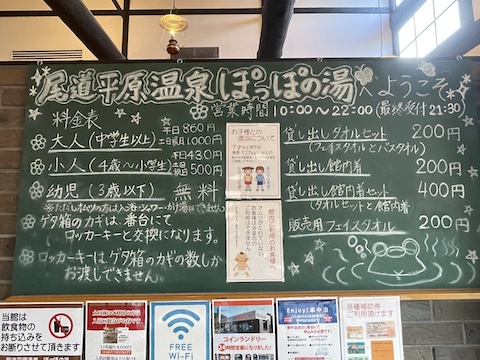 尾道平原温泉 ぽっぽの湯へようこそ
営業時間 10:00〜22:00 (最終受付21:30)
料金表
大人(中学生以上) 平日860円
土日祝1,000円
小人(4歳〜小学生) 平日430円
500円
幼児(3歳以下) 無料
ゲタ箱のカギは、番台にて
ロッカーキーと交換になります。
ロッカーキーはゲタ箱のカギの数しか
お渡しできません。
お子様との
混浴について
館内ご利用のお客様へ
貸し出しタオルセット 200円
(フェイスタオルとバスタオル)
貸し出し館内着 200円
貸し出し館内着セット 400円
(タオルセットと館内着)
販売用フェイスタオル 200円
当館は
飲食物の
持ち込みを
お断りさせて頂きます
FREE
Wi-Fi
コインランドリー
24時間営業
Enjoy!車中泊
各種補助券
ご利用頂けます